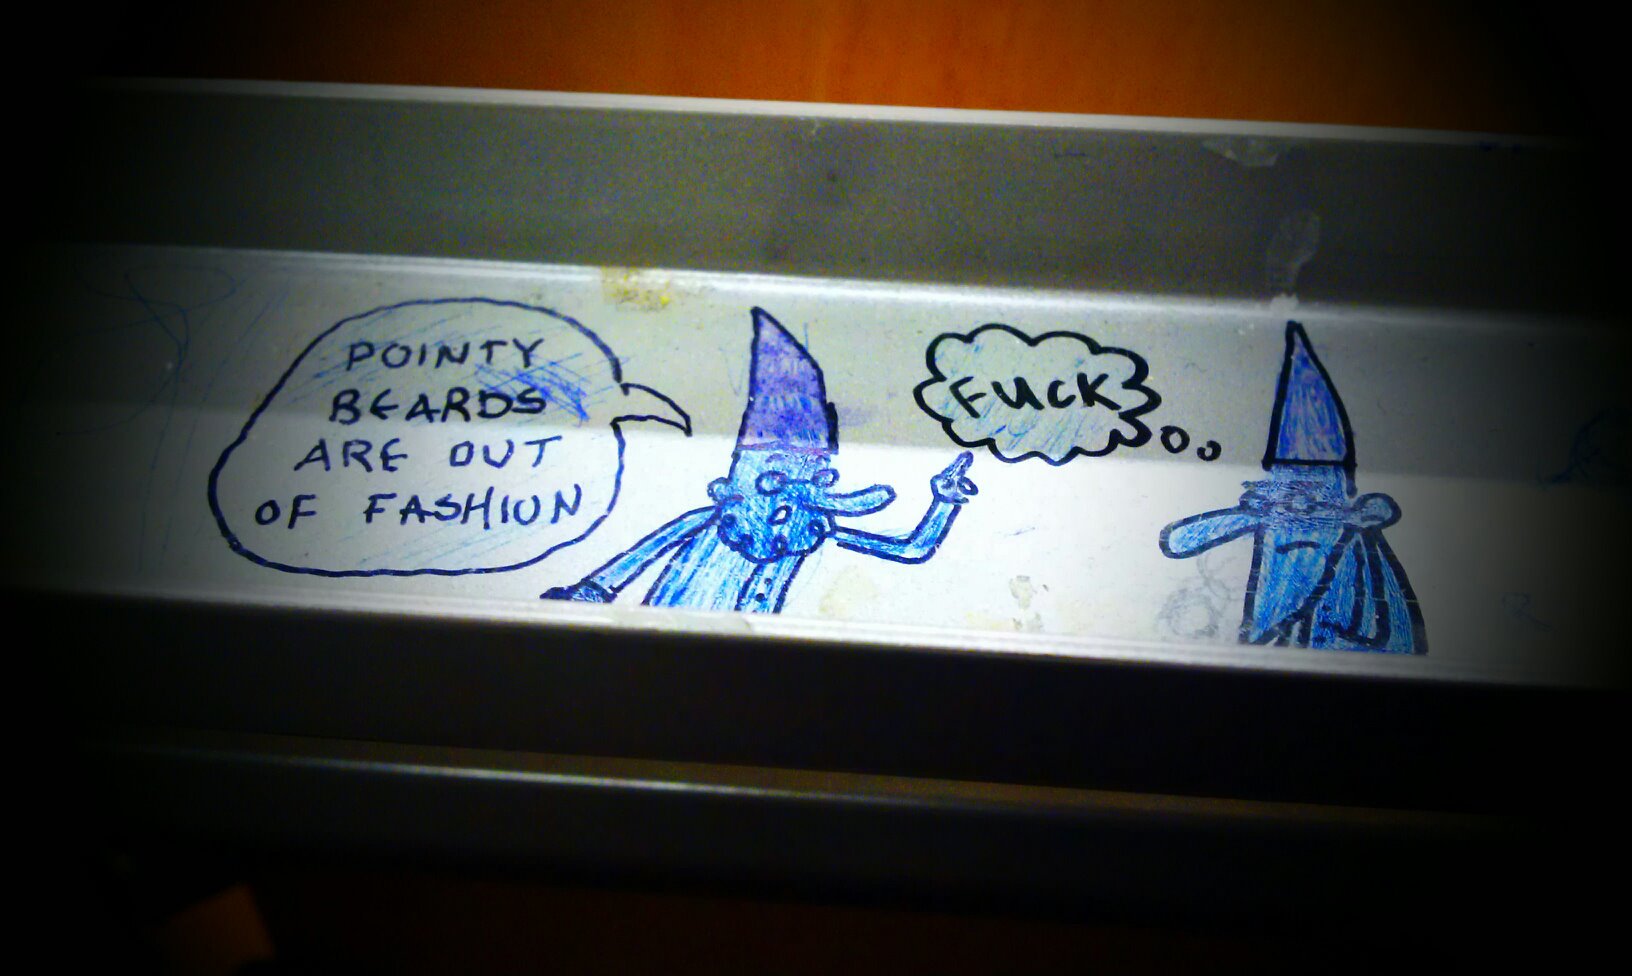 POINTY
BEARDS
ARE OUT
OF FASHION
FUCK